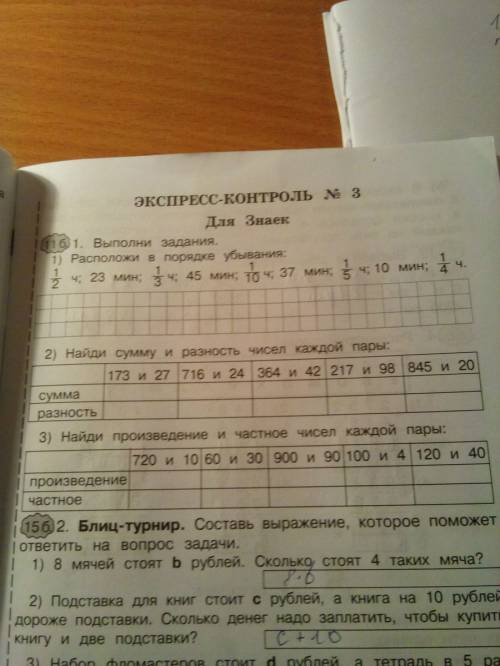 ЭКСПРЕСС-КОНТРОЛЬ № 3
Для Знаек
11б 1. Выполни задания.
1) Расположи в порядке убывания:
1/2 ч; 23 мин; 1/3 ч; 45 мин; 1/10 ч; 37 мин; 1/5 ч; 10 мин; 1/4 ч.
2) Найди сумму и разность чисел каждой пары:
173 и 27 716 и 24 364 и 42 217 и 98 845 и 20
сумма
разность
3) Найди произведение и частное чисел каждой пары:
720 и 10 60 и 30 900 и 90 100 и 4 120 и 40
произведение
частное
15б 2. Блиц-турнир. Составь выражение, которое поможет
ответить на вопрос задачи.
1) 8 мячей стоят b рублей. Сколько стоят 4 таких мяча?
2) Подставка для книг стоит c рублей, а книга на 10 рублей
дороже подставки. Сколько денег надо заплатить, чтобы купить
книгу и две подставки? c + 10
3) Набор фломастеров стоит d рублей, а тетрадь в 5 раз